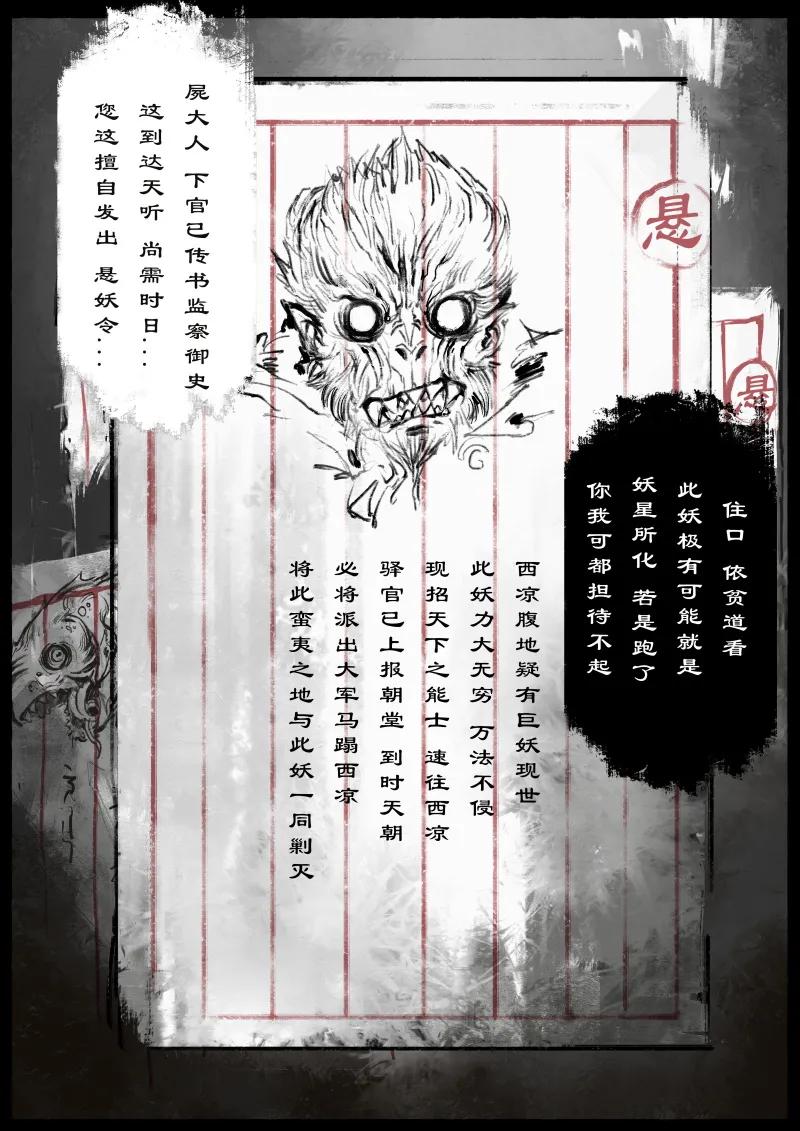 悬
悬
住口 依贫道看
此妖极有可能就是
妖星所化 若是跑了
你我可都担待不起
西凉腹地疑有巨妖现世
此妖力大无穷 万法不侵
现招天下之能士 速往西凉
驿官已上报朝堂 到时天朝
必将派出大军马蹋西凉
将此蛮夷之地与此妖一同剿灭
屍大人 下官已传书监察御史
这到达天听 尚需时日...
您这擅自发出 悬妖令...